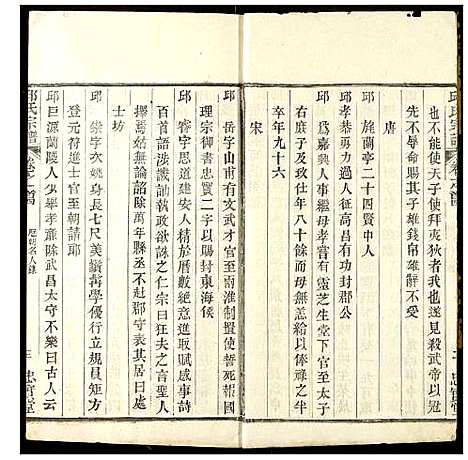 邱氏宗譜
也不能使天子使拜夷狄者我也最殺武帝以冠
先不辱命賜其子雄錢帛雄辭不受
唐
邱旄蘭亭二十四賢中人
邱孝恭勇力過人征高昌有功封郡公
邱為嘉興人事母孝有靈芝生堂下官至太子
右庶子及致仕年八十餘而母無恙給俸祿之半
卒年九十六
宋
邱岳字山甫有文武才官至兩淮制置使誓死報國
理宗御書忠實二字以賜封東海侯
邱睿字思道建安人精於曆數絕意進取賦感事詩
百首語侵當軸執政欲誅之仁宗曰狂夫之言聖人
尚無論詔除萬年縣丞不赴郡守表其居曰處
士坊
邱崇字衣姚身長七尺美鬚髯學優行立規員矩方
登元符進士官至朝請郎
邱巨源蘭陵人少舉孝廉除武昌太守不樂曰古人云
邱氏宗譜
歷朝名人錄
三
忠實堂